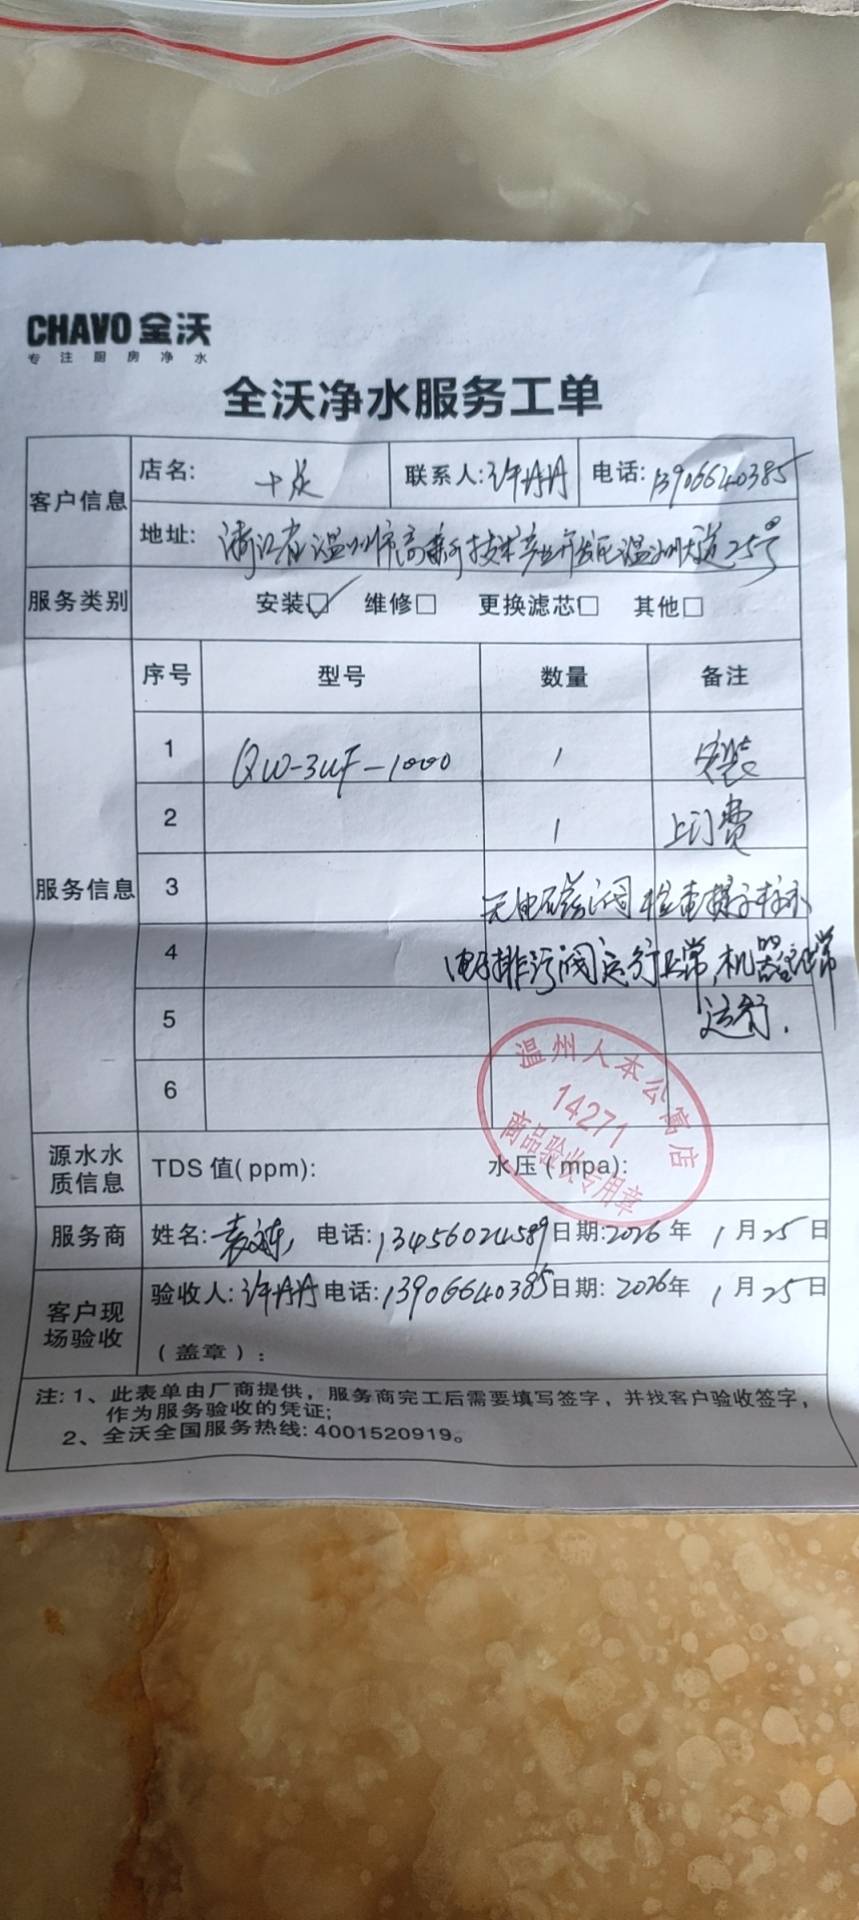 CHAVO 全沃
专注厨房净水
全沃净水服务工单
客户信息 店名: 十足 联系人: 许丹丹 电话: 13906640385
地址: 浙江省温州市高新技术产业开发区温州大道25号
服务类别 安装☑ 维修□ 更换滤芯□ 其他□
服务信息 序号 型号 数量 备注
1 QW-3UF-1000 1 安装
2 1 上门费
3 无电磁阀 检查
4 电子排污阀运行正常,机器正常
5 运行.
6
温州人本公寓店
14271
商品验收专用章
源水水质信息 TDS值(ppm): 水压(mpa):
服务商 姓名: 袁 电话: 13456024589 日期: 2026年1月25日
客户现场验收 验收人: 许丹丹 电话: 13906640385 日期: 2026年1月25日
(盖章):
注: 1、此表单由厂商提供,服务商完工后需要填写签字,并找客户验收签字,
作为服务验收的凭证;
2、全沃全国服务热线: 4001520919。